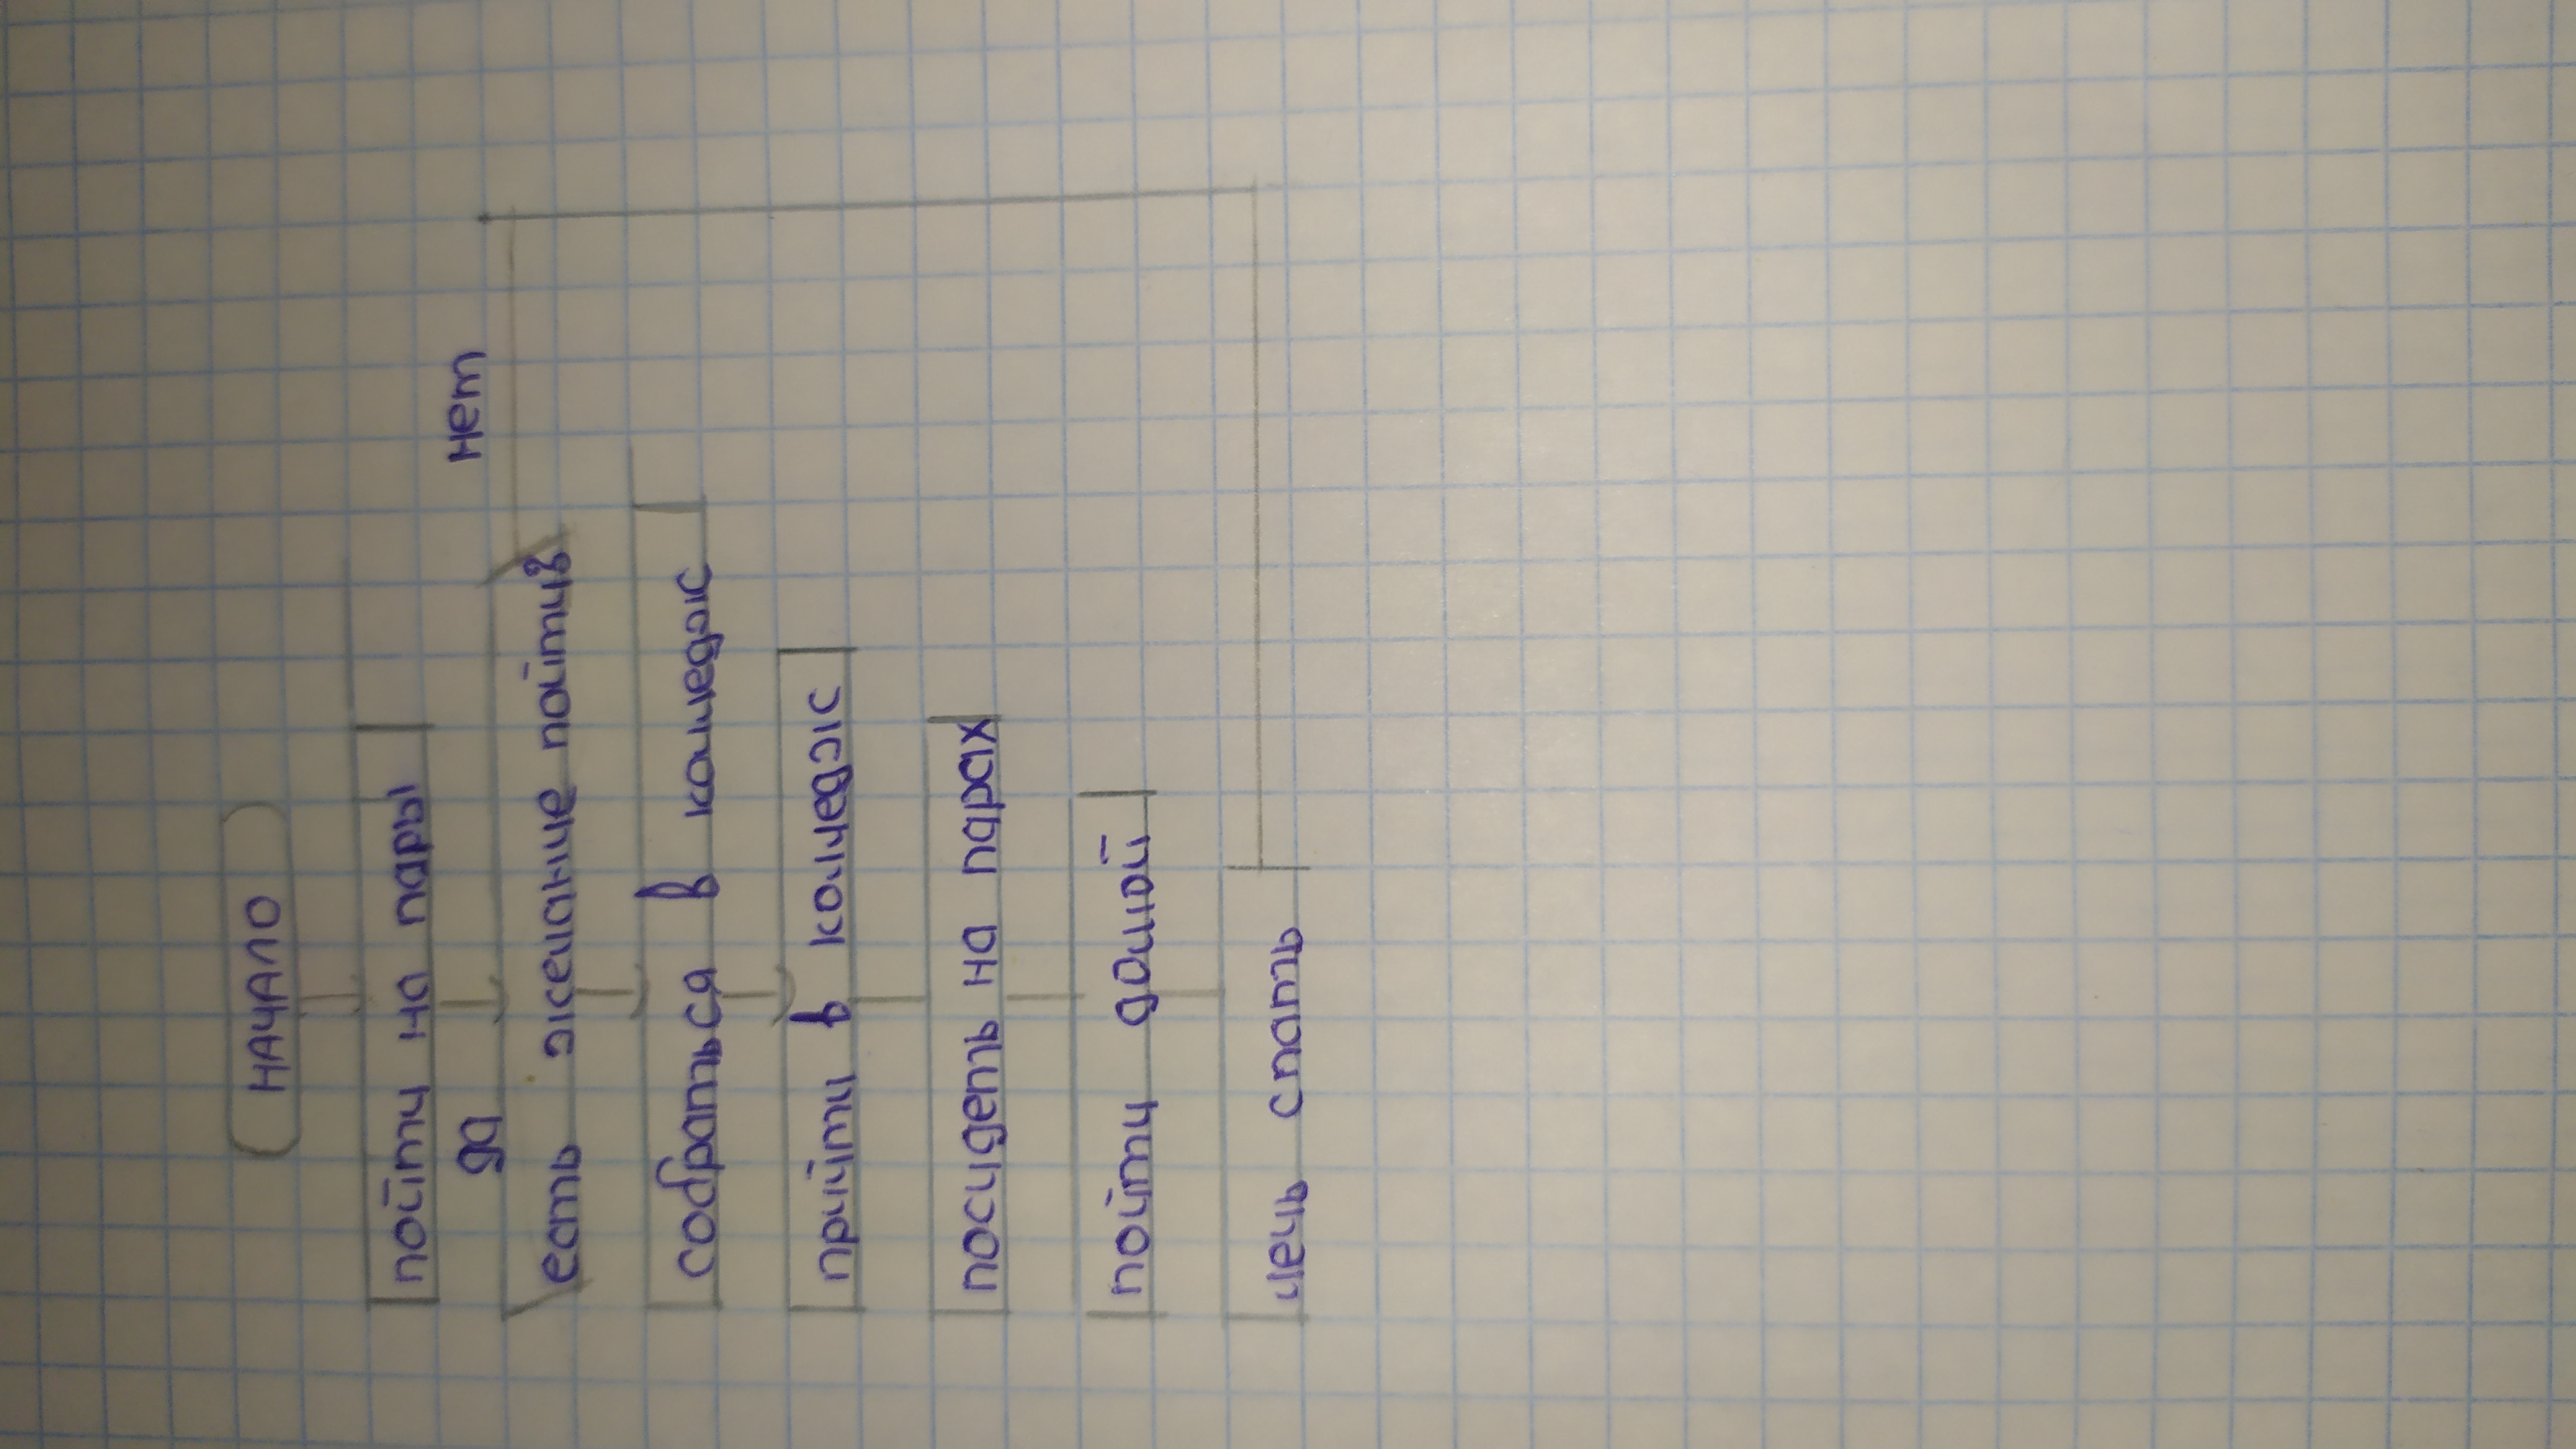 НАЧАЛО
пойти на пары
да
нет
есть желание пойти?
собраться в колледж
прийти в колледж
посидеть на парах
пойти домой
лечь спать